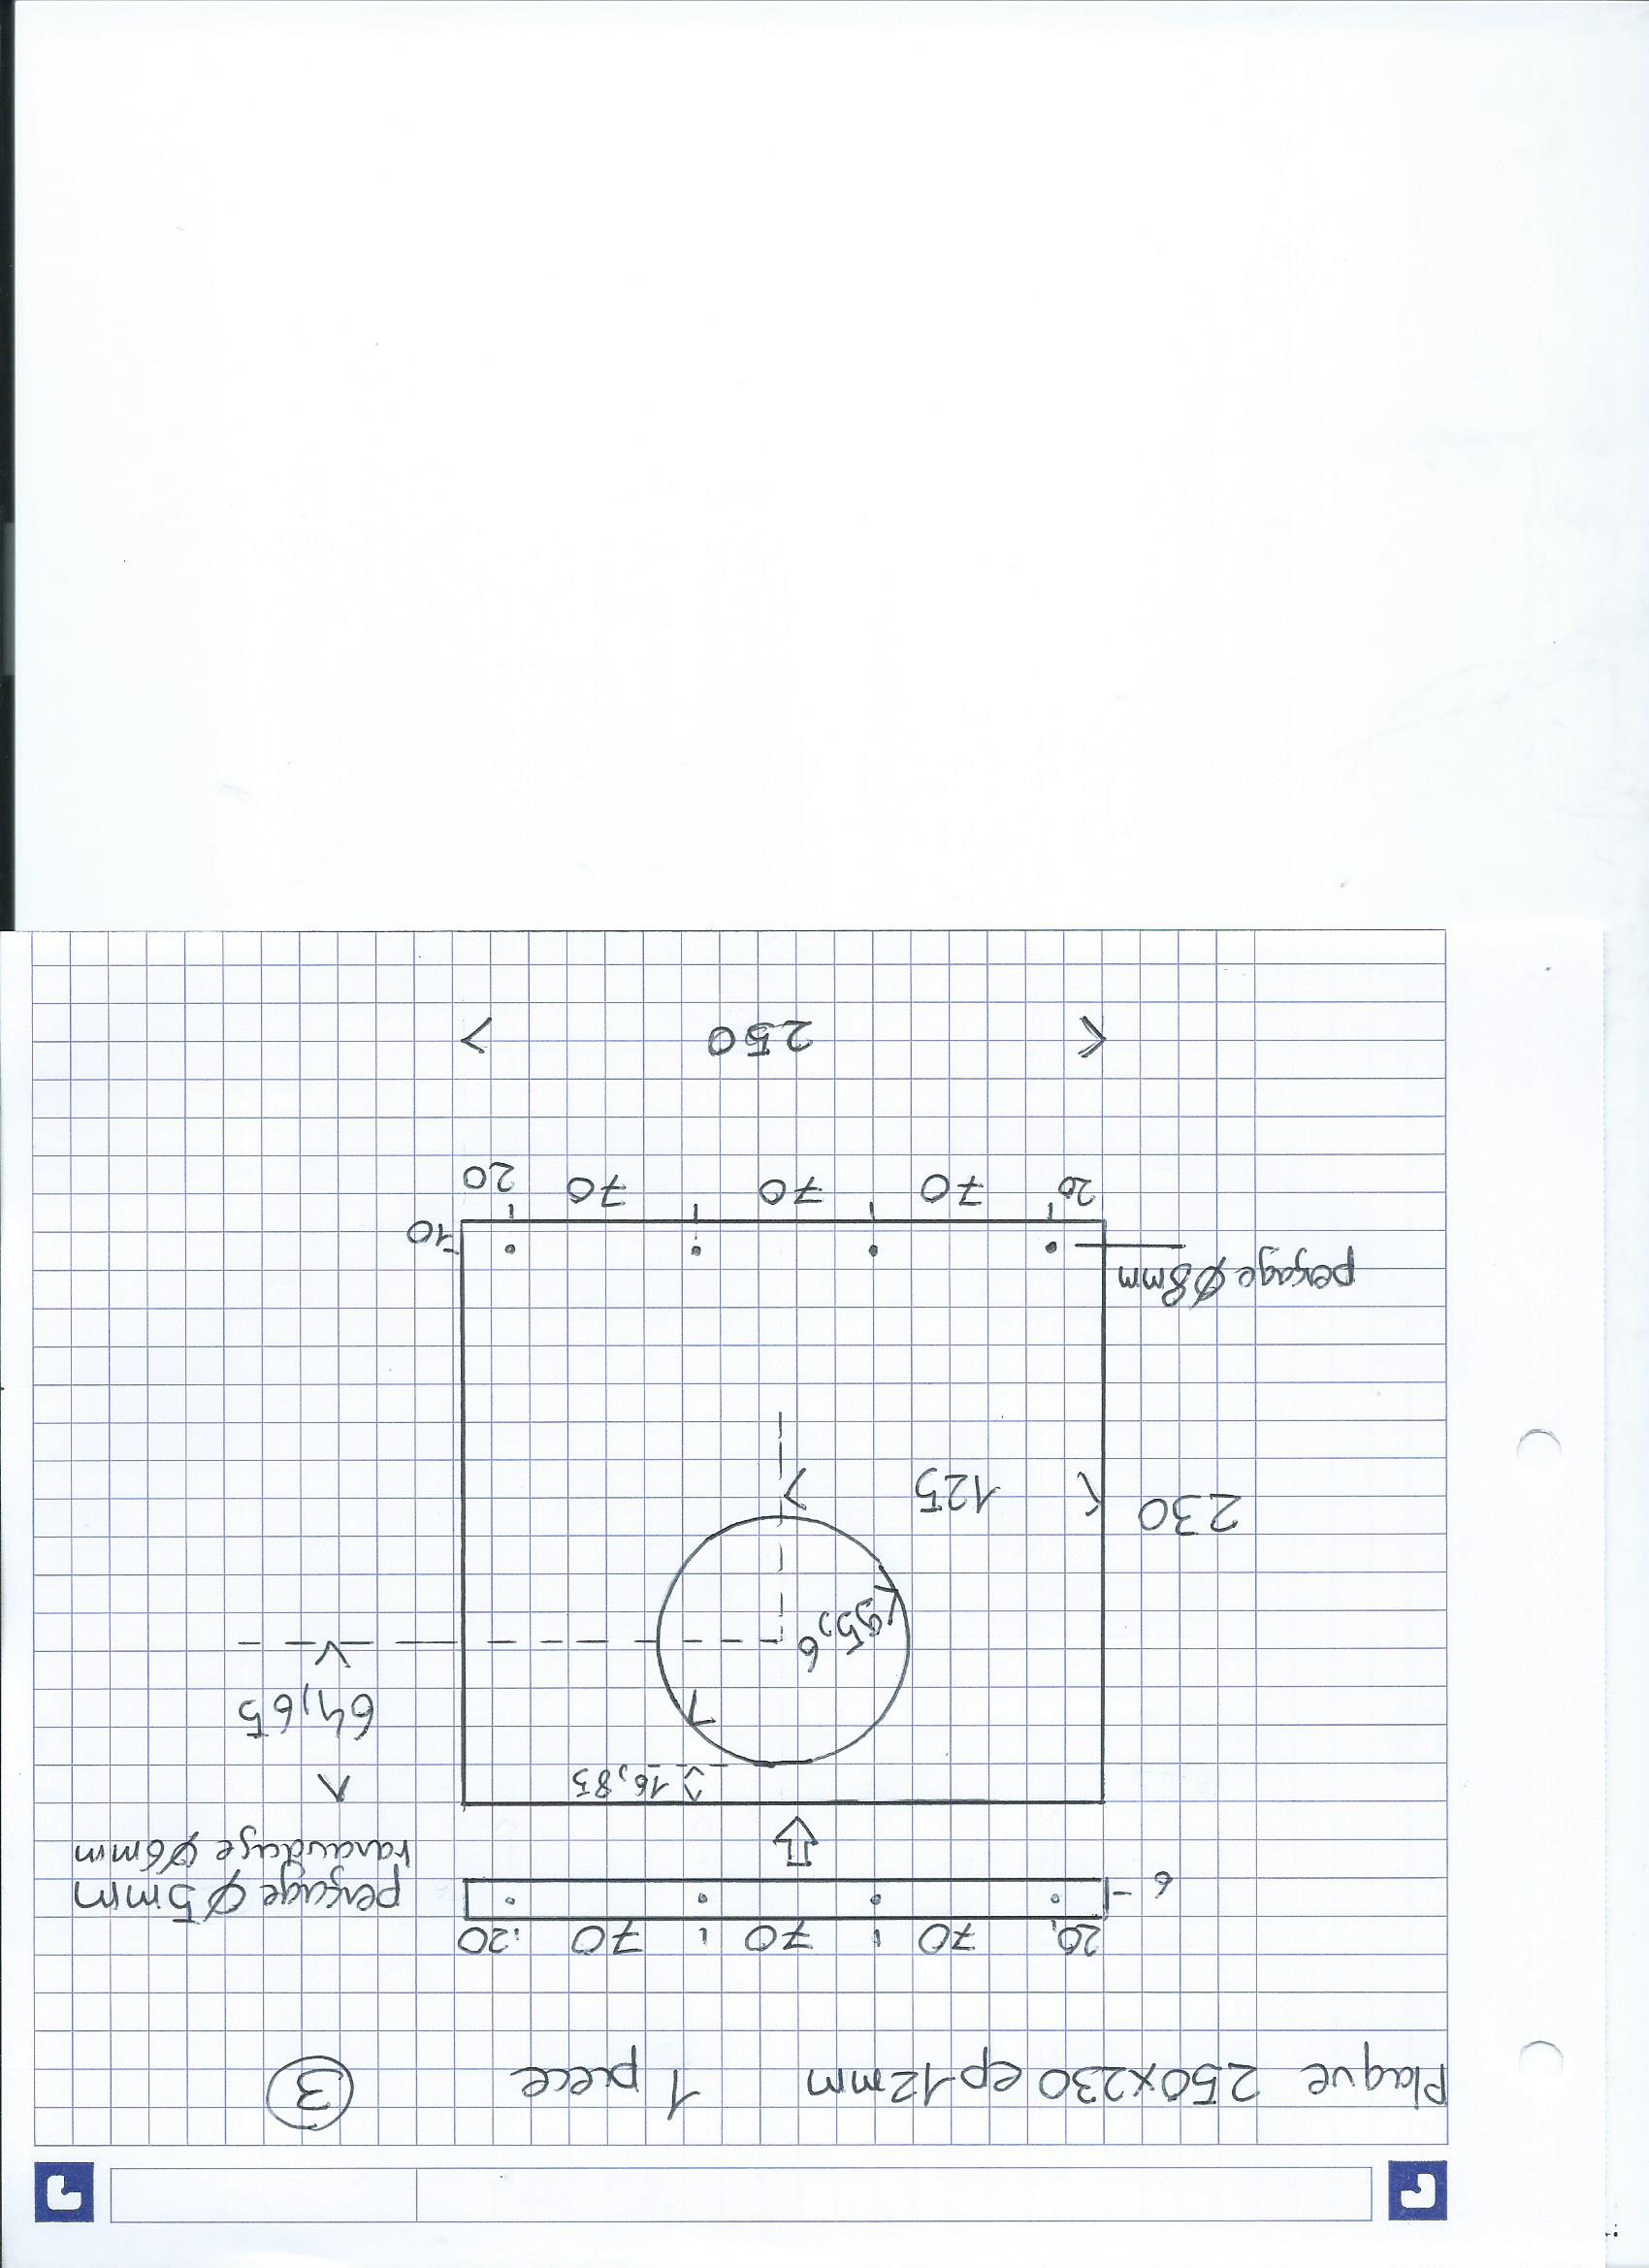 Plaque 250x230 ep 12mm 1 piece 3
20 70 70 70 20
6
perçage ø 5mm
taraudage ø6mm
16,85
64,65
95,6
230
125
perçage ø8mm
10
20 70 70 70 20
250